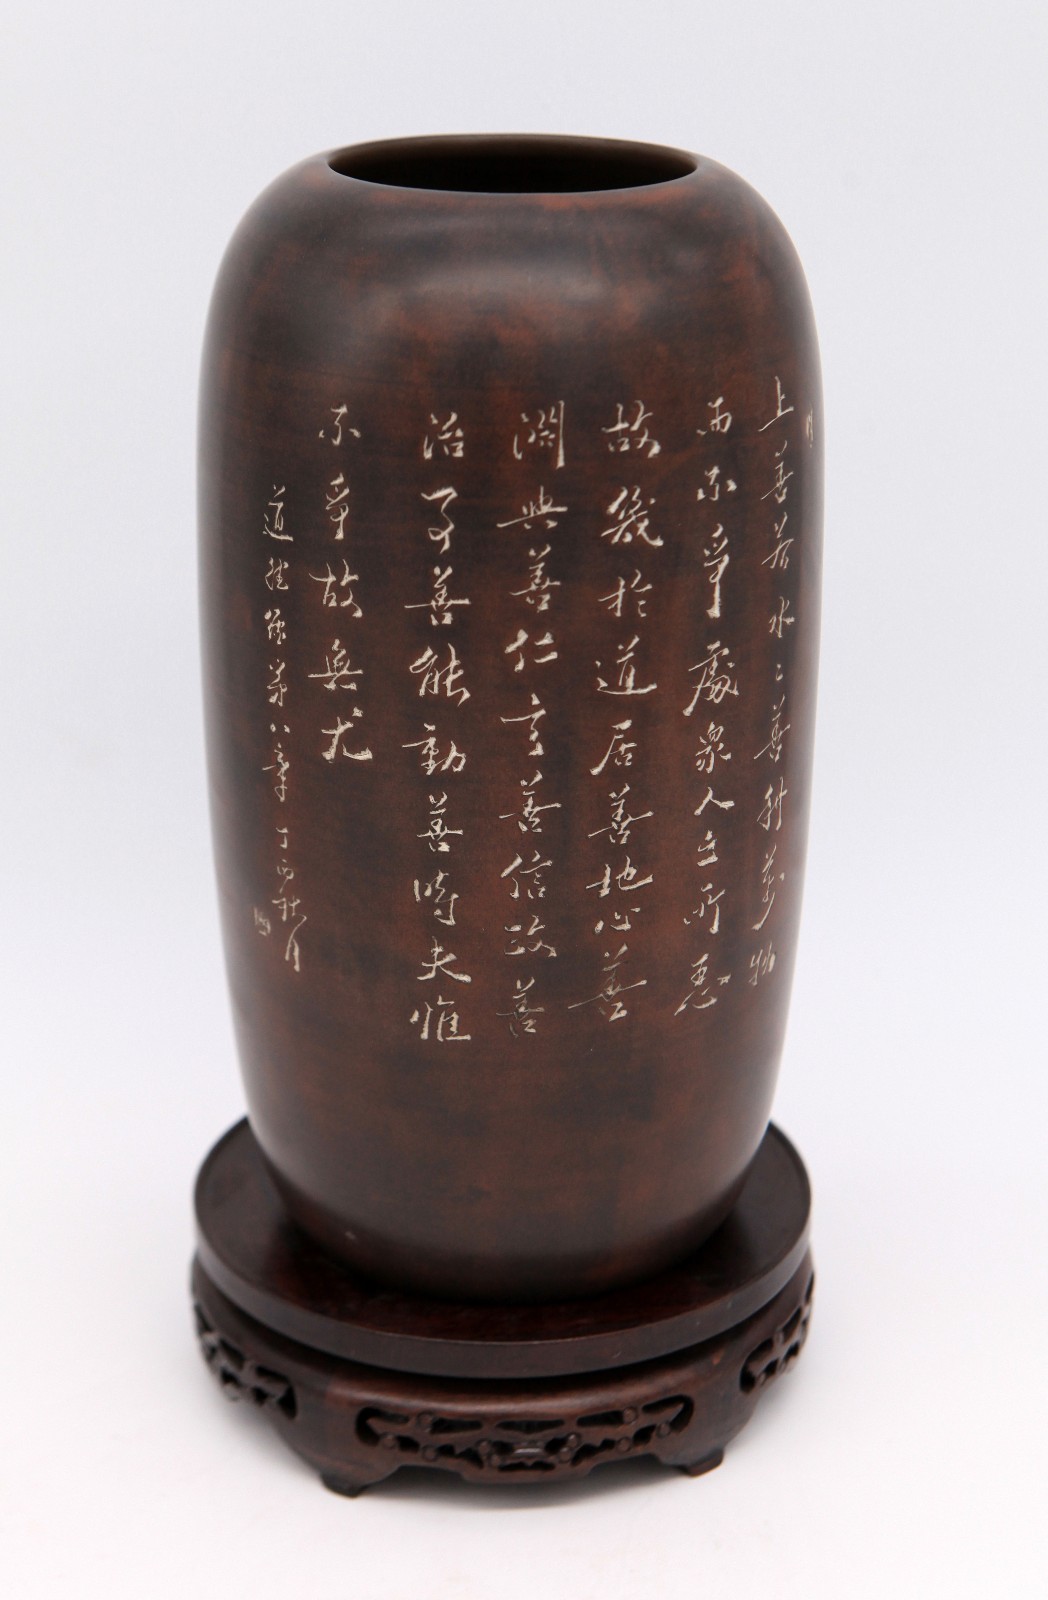 上善若水水善利萬物
而不爭處衆人之所惡
故幾於道居善地心善
淵與善仁言善信政善
治事善能動善時夫惟
不爭故無尤
道德經第八章 丁酉秋月